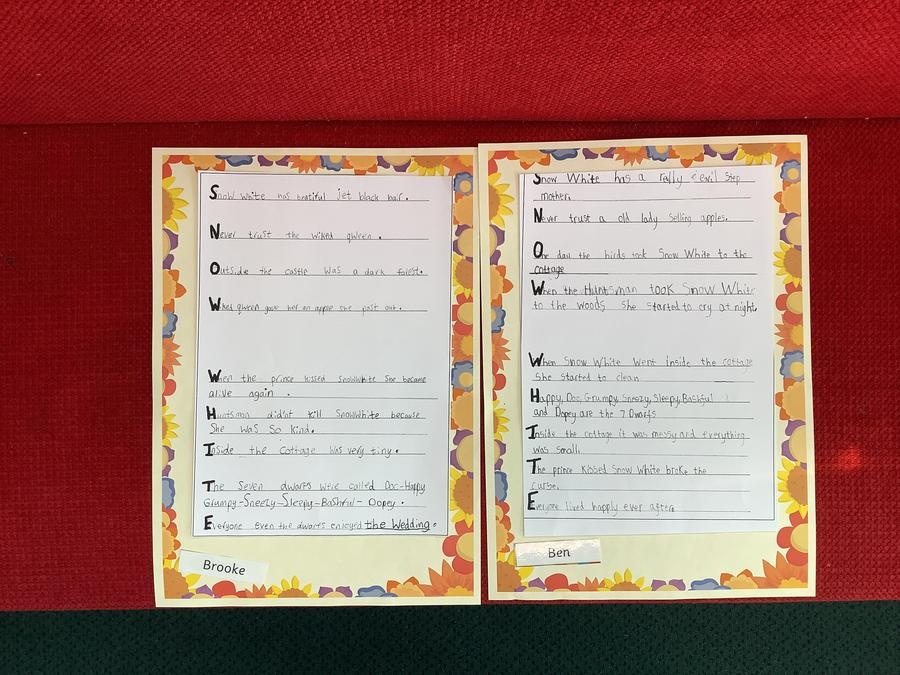 Snow White has beatiful jet black hair.
Never trust the wiked qween.
Outside the castle was a dark forest.
When qween gave her an apple she past out.
When the prince kissed SnowWhite She became
alive again.
Huntsman didn't kill SnowWhite because
She was So Kind.
Inside the Cottage Was very tiny.
The Seven dwarfs were called Doc-Happy
Grumpy-Sneezy-Sleepy-Bashful-Dopey.
Everyone even the dwarfs enjoyed the Wedding.
Brooke
Snow White has a rally evil Step
mother.
Never trust a old lady Selling apples.
One day the birds took Snow White to the
cottage
When the Huntsman took Snow White
to the woods She Started to cry at night.
When Snow White Went inside the cottage
She started to clean
Happy, Doc, Grumpy, Sneezy, Sleepy, Bashful
and Dopey are the 7 Dwarfs
Inside the cottage it was messy and everything
was small.
The prince Kissed Snow White broke the
curse.
Everyone lived happly ever after.
Ben